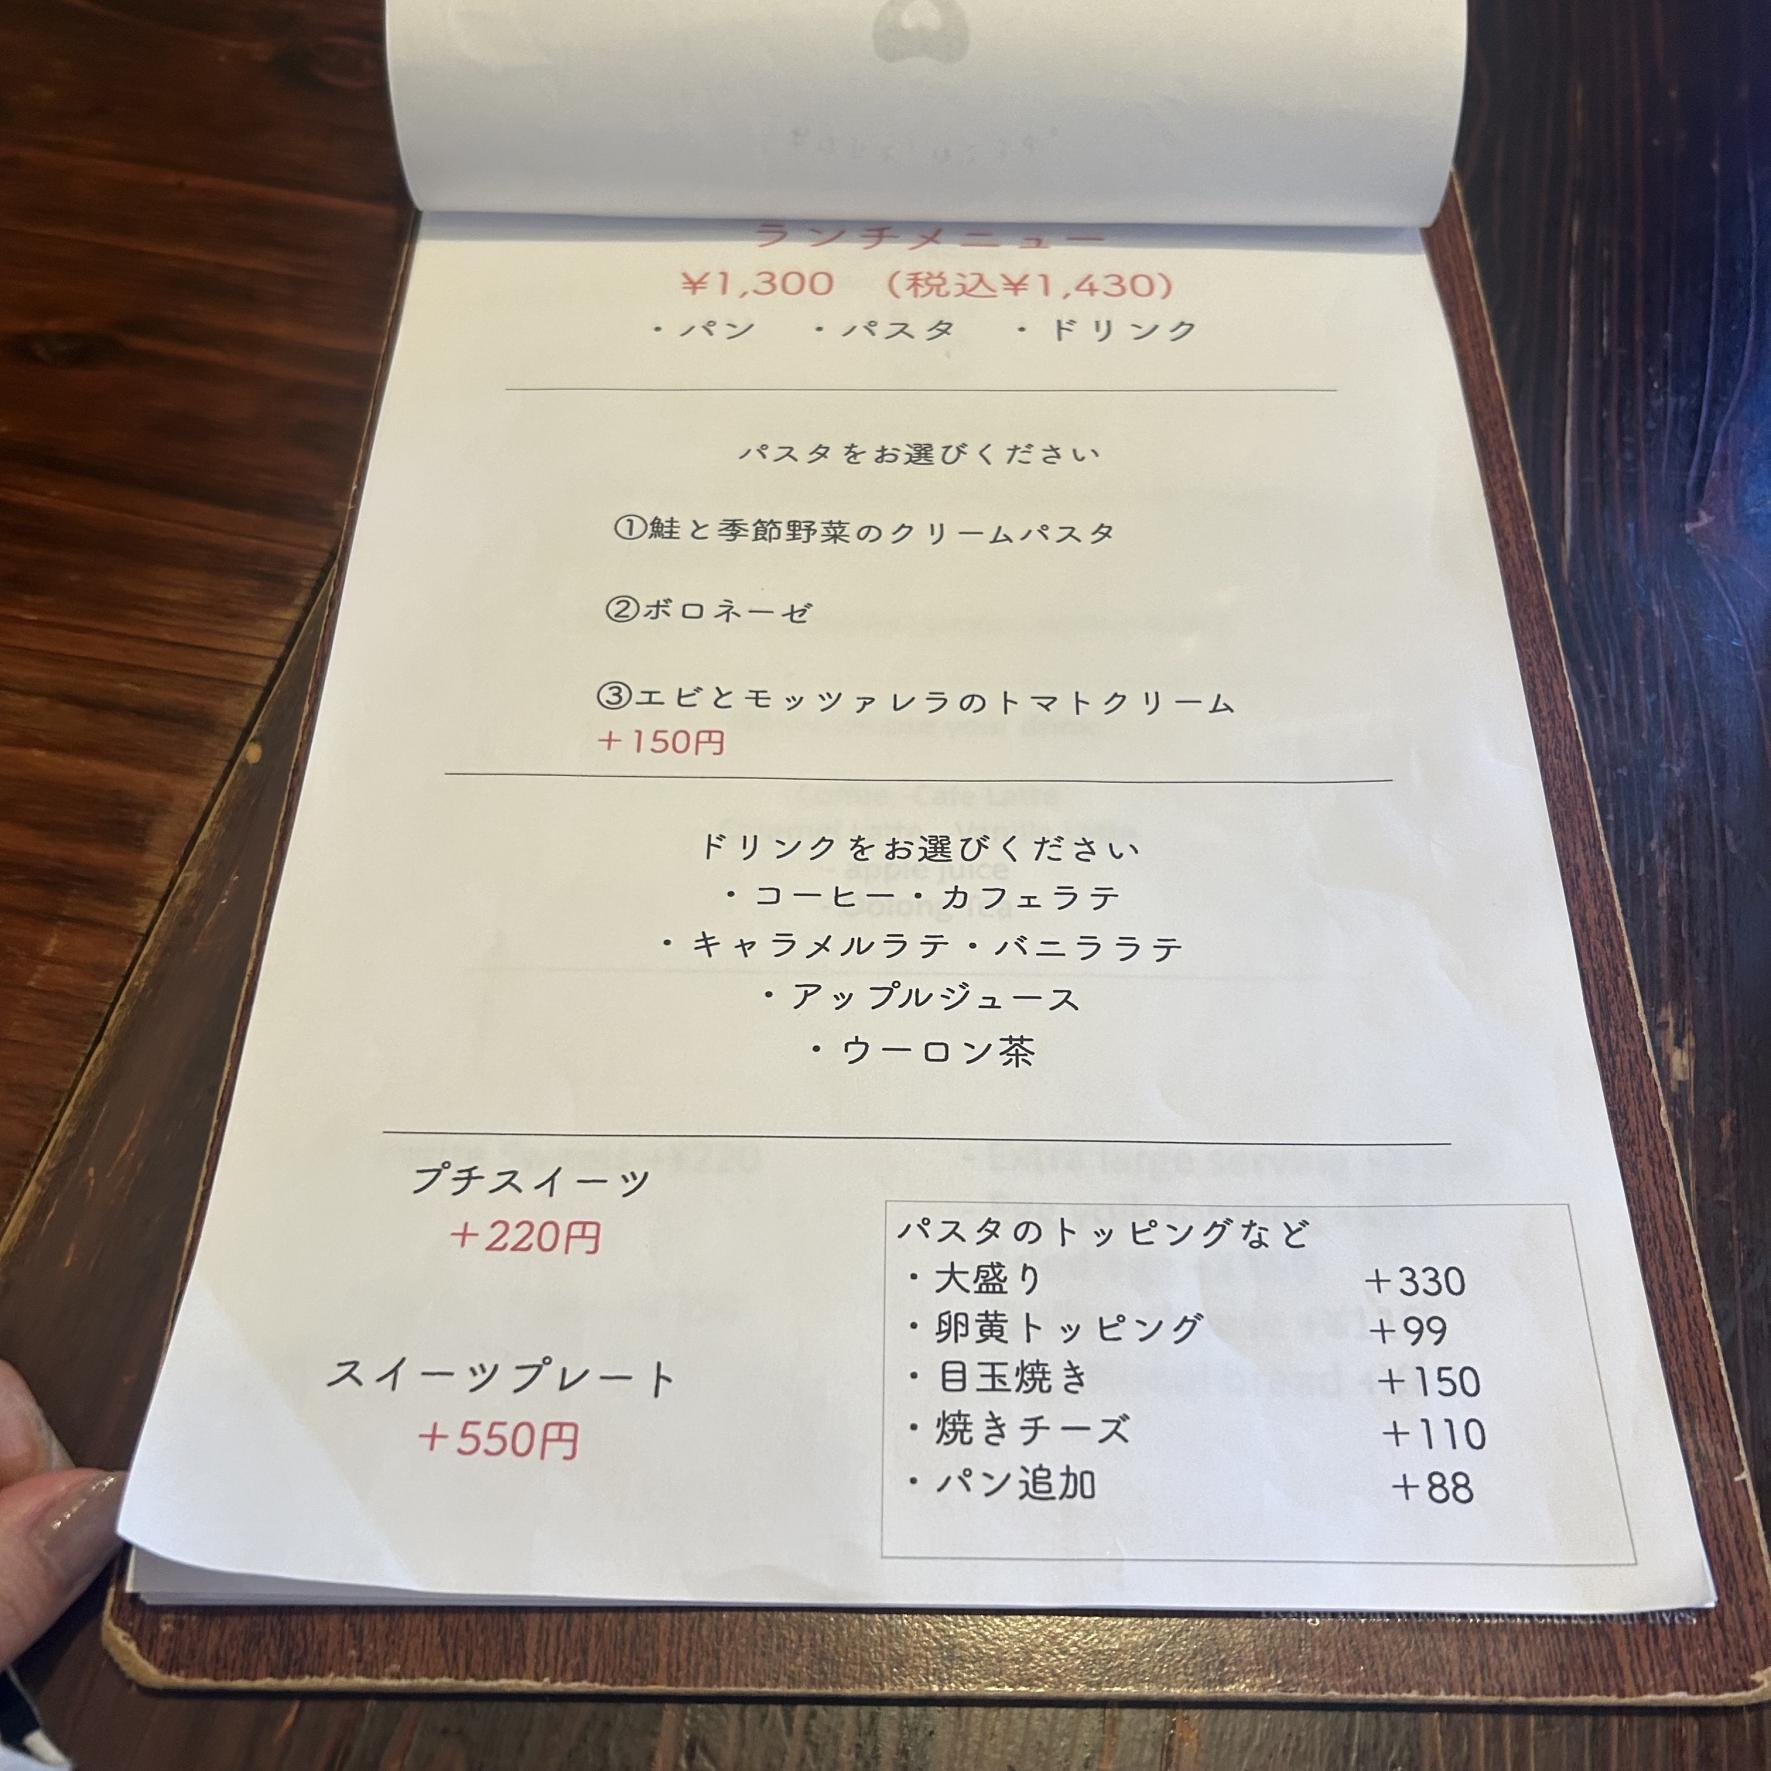 ランチメニュー
¥1,300　(税込¥1,430)
・パン　・パスタ　・ドリンク
パスタをお選びください
①鮭と季節野菜のクリームパスタ
②ボロネーゼ
③エビとモッツァレラのトマトクリーム
＋150円
ドリンクをお選びください
・コーヒー・カフェラテ
・キャラメルラテ・バニララテ
・アップルジュース
・ウーロン茶
プチスイーツ
＋220円
スイーツプレート
＋550円
パスタのトッピングなど
・大盛り　＋330
・卵黄トッピング　＋99
・目玉焼き　＋150
・焼きチーズ　＋110
・パン追加　＋88